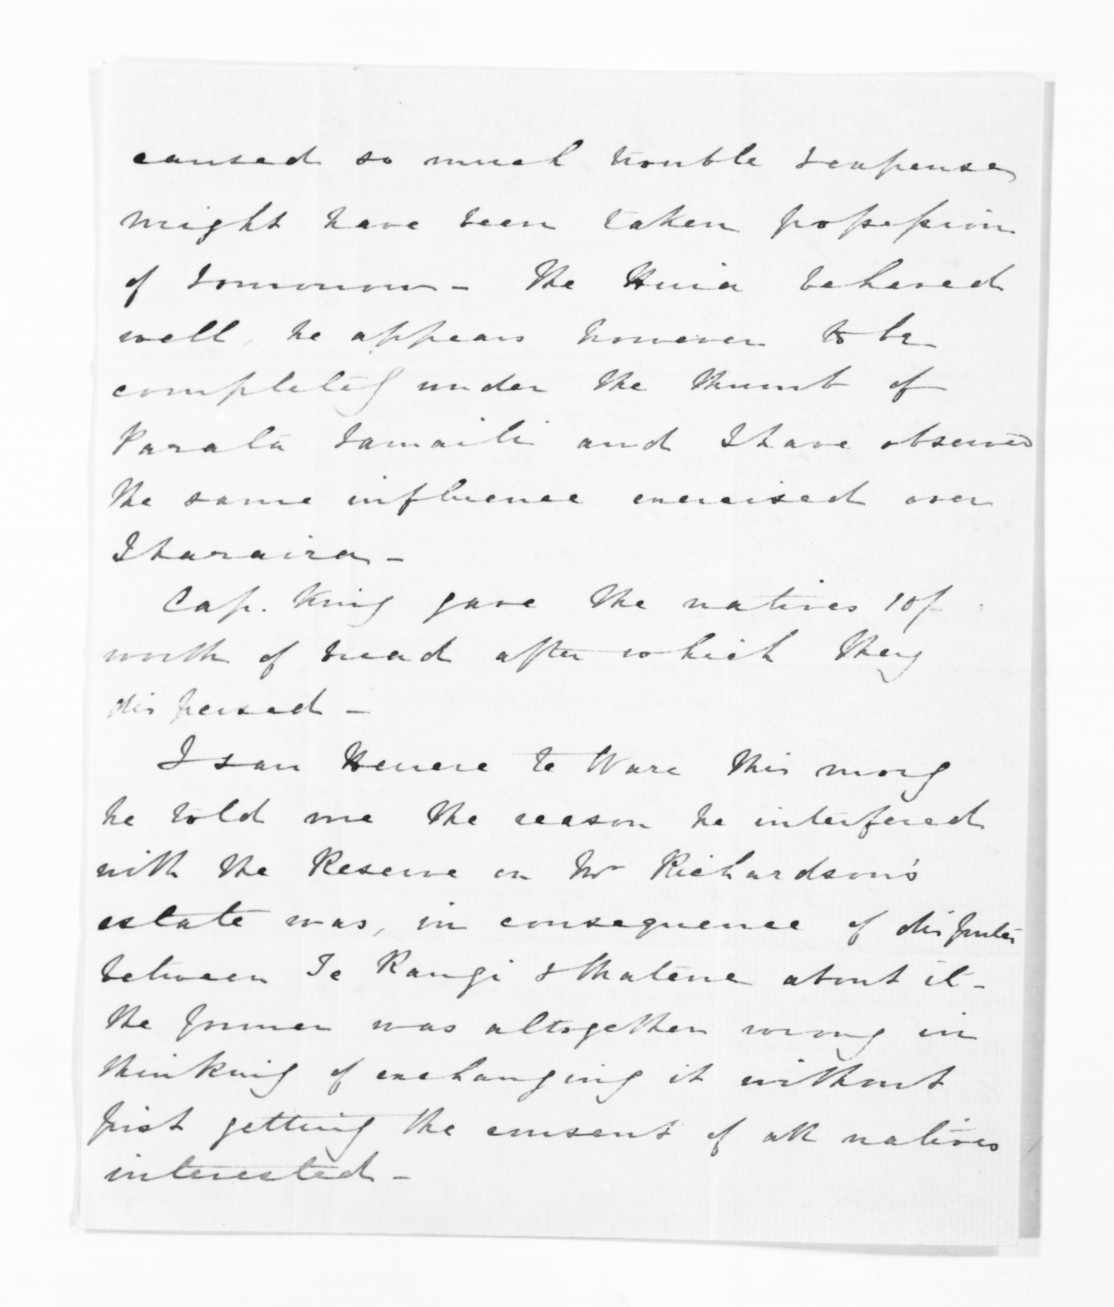 caused so much trouble & expense
might have been taken possession
of tomorrow - The Huia behaved
well, he appears however to be
completely under the thumb of
Parata Tamaiti and I have observed
the same influence exercised over
Iharaira -
Cap. King gave the natives 10/-
worth of bread after which they
dispersed -
I saw Henere te Ware this morg
he told me the reason he interfered
with the Reserve on Mr Richardson's
estate was, in consequence of disputes
between Te Rangi & Matene about it -
the former was altogether wrong in
thinking of exchanging it without
first getting the consent of all natives
interested -